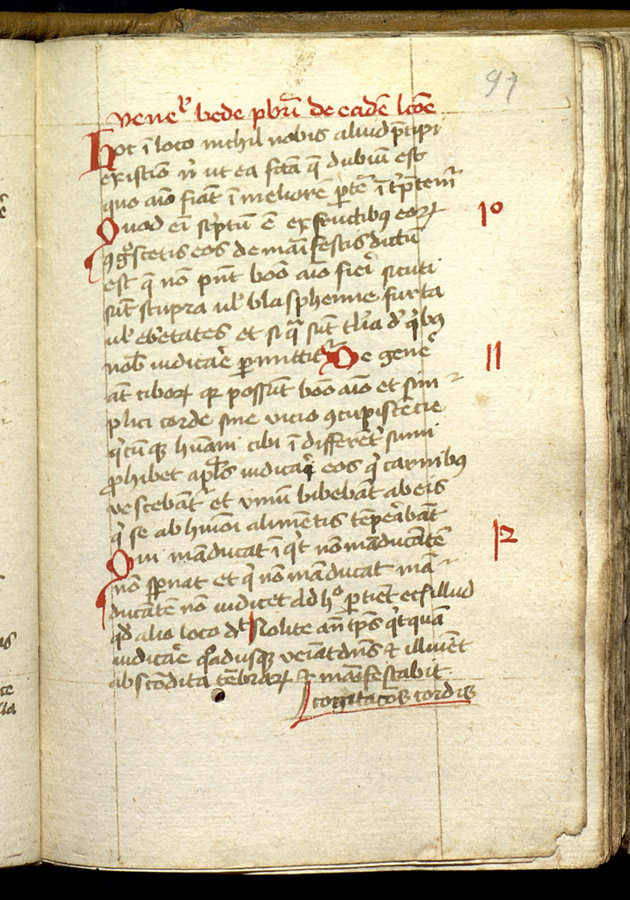 97
vene͛ bede pbri̅ de eade̅ lc̅o̅e
Hoc i̅ loco nichil nobis aliud p̅cipi
existi̅o n̅ ut ea fc̅a q̅ dubiu̅ est
quo ai̅o fiant i̅ meliore̅ p̲te̅ i̅t̅p̅tem᷑
10
Quod ei̅ sc̅ptu̅ e̅ ex fructibus eoꝝ
ꝯgͦscetis eos de ma̅ifestis dictu̅
est q̅ no̅ pn̅t bo̅o ai̅o fieri̅ sicuti
su̅t stupra ul̕ blasphemie furta
ul̕ eb̕etates et si qͣ su̅t tl̅ia d̕ qͥbꝯ
nob̅ iudica̅e p̲mittit᷑ De gene̅
11
a̅t ciboꝝ qꝫ possu̅t bo̅o ai̅o et sim
plici corde sine vicio ꝯcupisce̅cie
qͥcu̅qꝫ hu̅ani cibi i̅differe̅t᷑ sumi
ꝓhibet apl̅s iudica̅i eos qͥ carnibꝯ
vesceba̅t᷑ et vinu̅ bibeba̅t ab eis
qͥ se ab hm̅oi alime̅tis te̅p̲aba̅t
12
Qui ma̅ducat i̅qͥt no̅ ma̅ducate̅
no̅ sp̲nat et qͥ no̅ manducat ma̅
ducate̅ no̅ iudicet Ad hͦ p̲tine̅t et illud
qd̕ alio loco d̅t Nolite an̅ tp̅s qͥtquam
iudica̅e quadusqꝫ veniat dn̅s et illumi̅et
abscondita te̅braꝝ et ma̅ifestabit
cogitac̅o̅es cordis